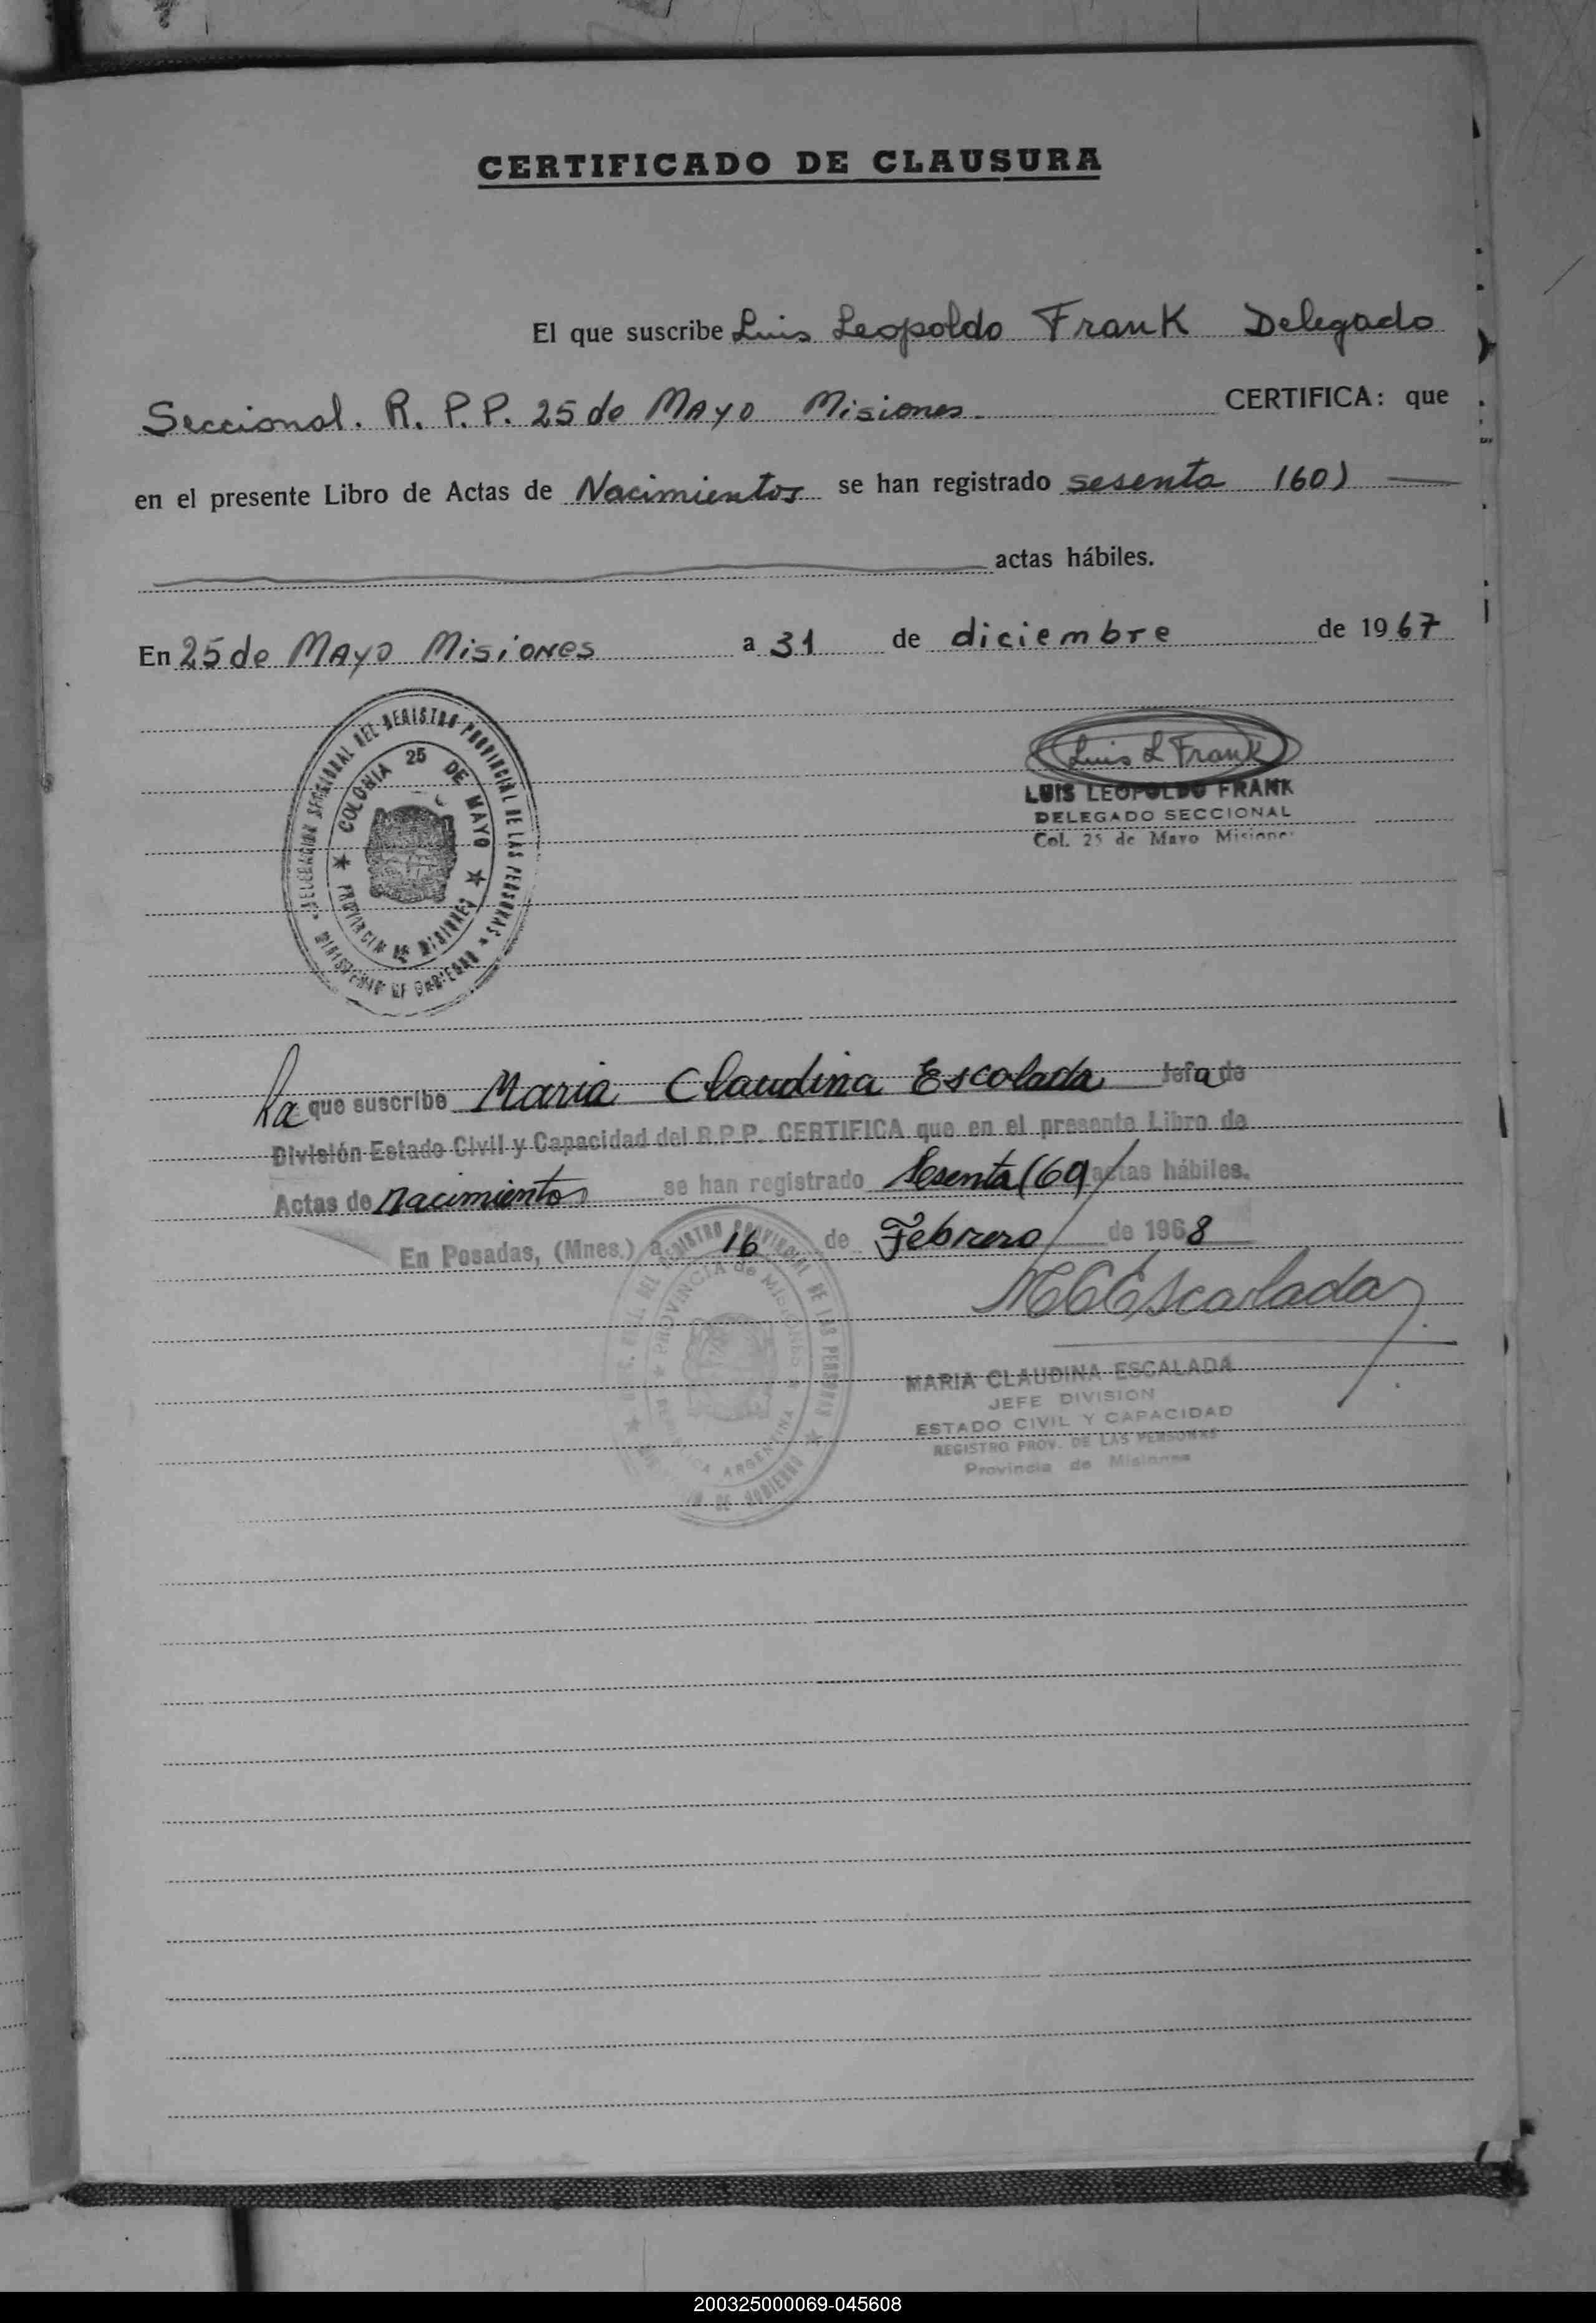 CERTIFICADO DE CLAUSURA
El que suscribe Luis Leopoldo Frank Delegado
Seccional. R. P.P. 25 de Mayo Misiones. CERTIFICA: que
en el presente Libro de Actas de Nacimientos se han registrado sesenta (60)
actas hábiles.
En 25 de Mayo Misiones a 31 de diciembre de 1967
DELEGACION SECCIONAL DEL REGISTRO PROVINCIAL DE LAS PERSONAS
MINISTERIO DE GOBIERNO
COLONIA 25 DE MAYO
PROVINCIA DE MISIONES
Luis L Frank
LUIS LEOPOLDO FRANK
DELEGADO SECCIONAL
Col. 25 de Mayo Misiones
La que suscribe Maria Claudina Escalada Jefa de
División Estado Civil y Capacidad del R.P.P. CERTIFICA que en el presente Libro de
Actas de nacimientos se han registrado Sesenta (60) actas hábiles.
En Posadas, (Mnes.) a 16 de Febrero de 1968
DEL REGISTRO PROVINCIAL DE LAS PERSONAS
DE GOBIERNO
PROVINCIA de MISIONES
REPUBLICA ARGENTINA
MCEscalada
MARIA CLAUDINA ESCALADA
JEFE DIVISION
ESTADO CIVIL Y CAPACIDAD
REGISTRO PROV. DE LAS PERSONAS
Provincia de Misiones
200325000069-045608